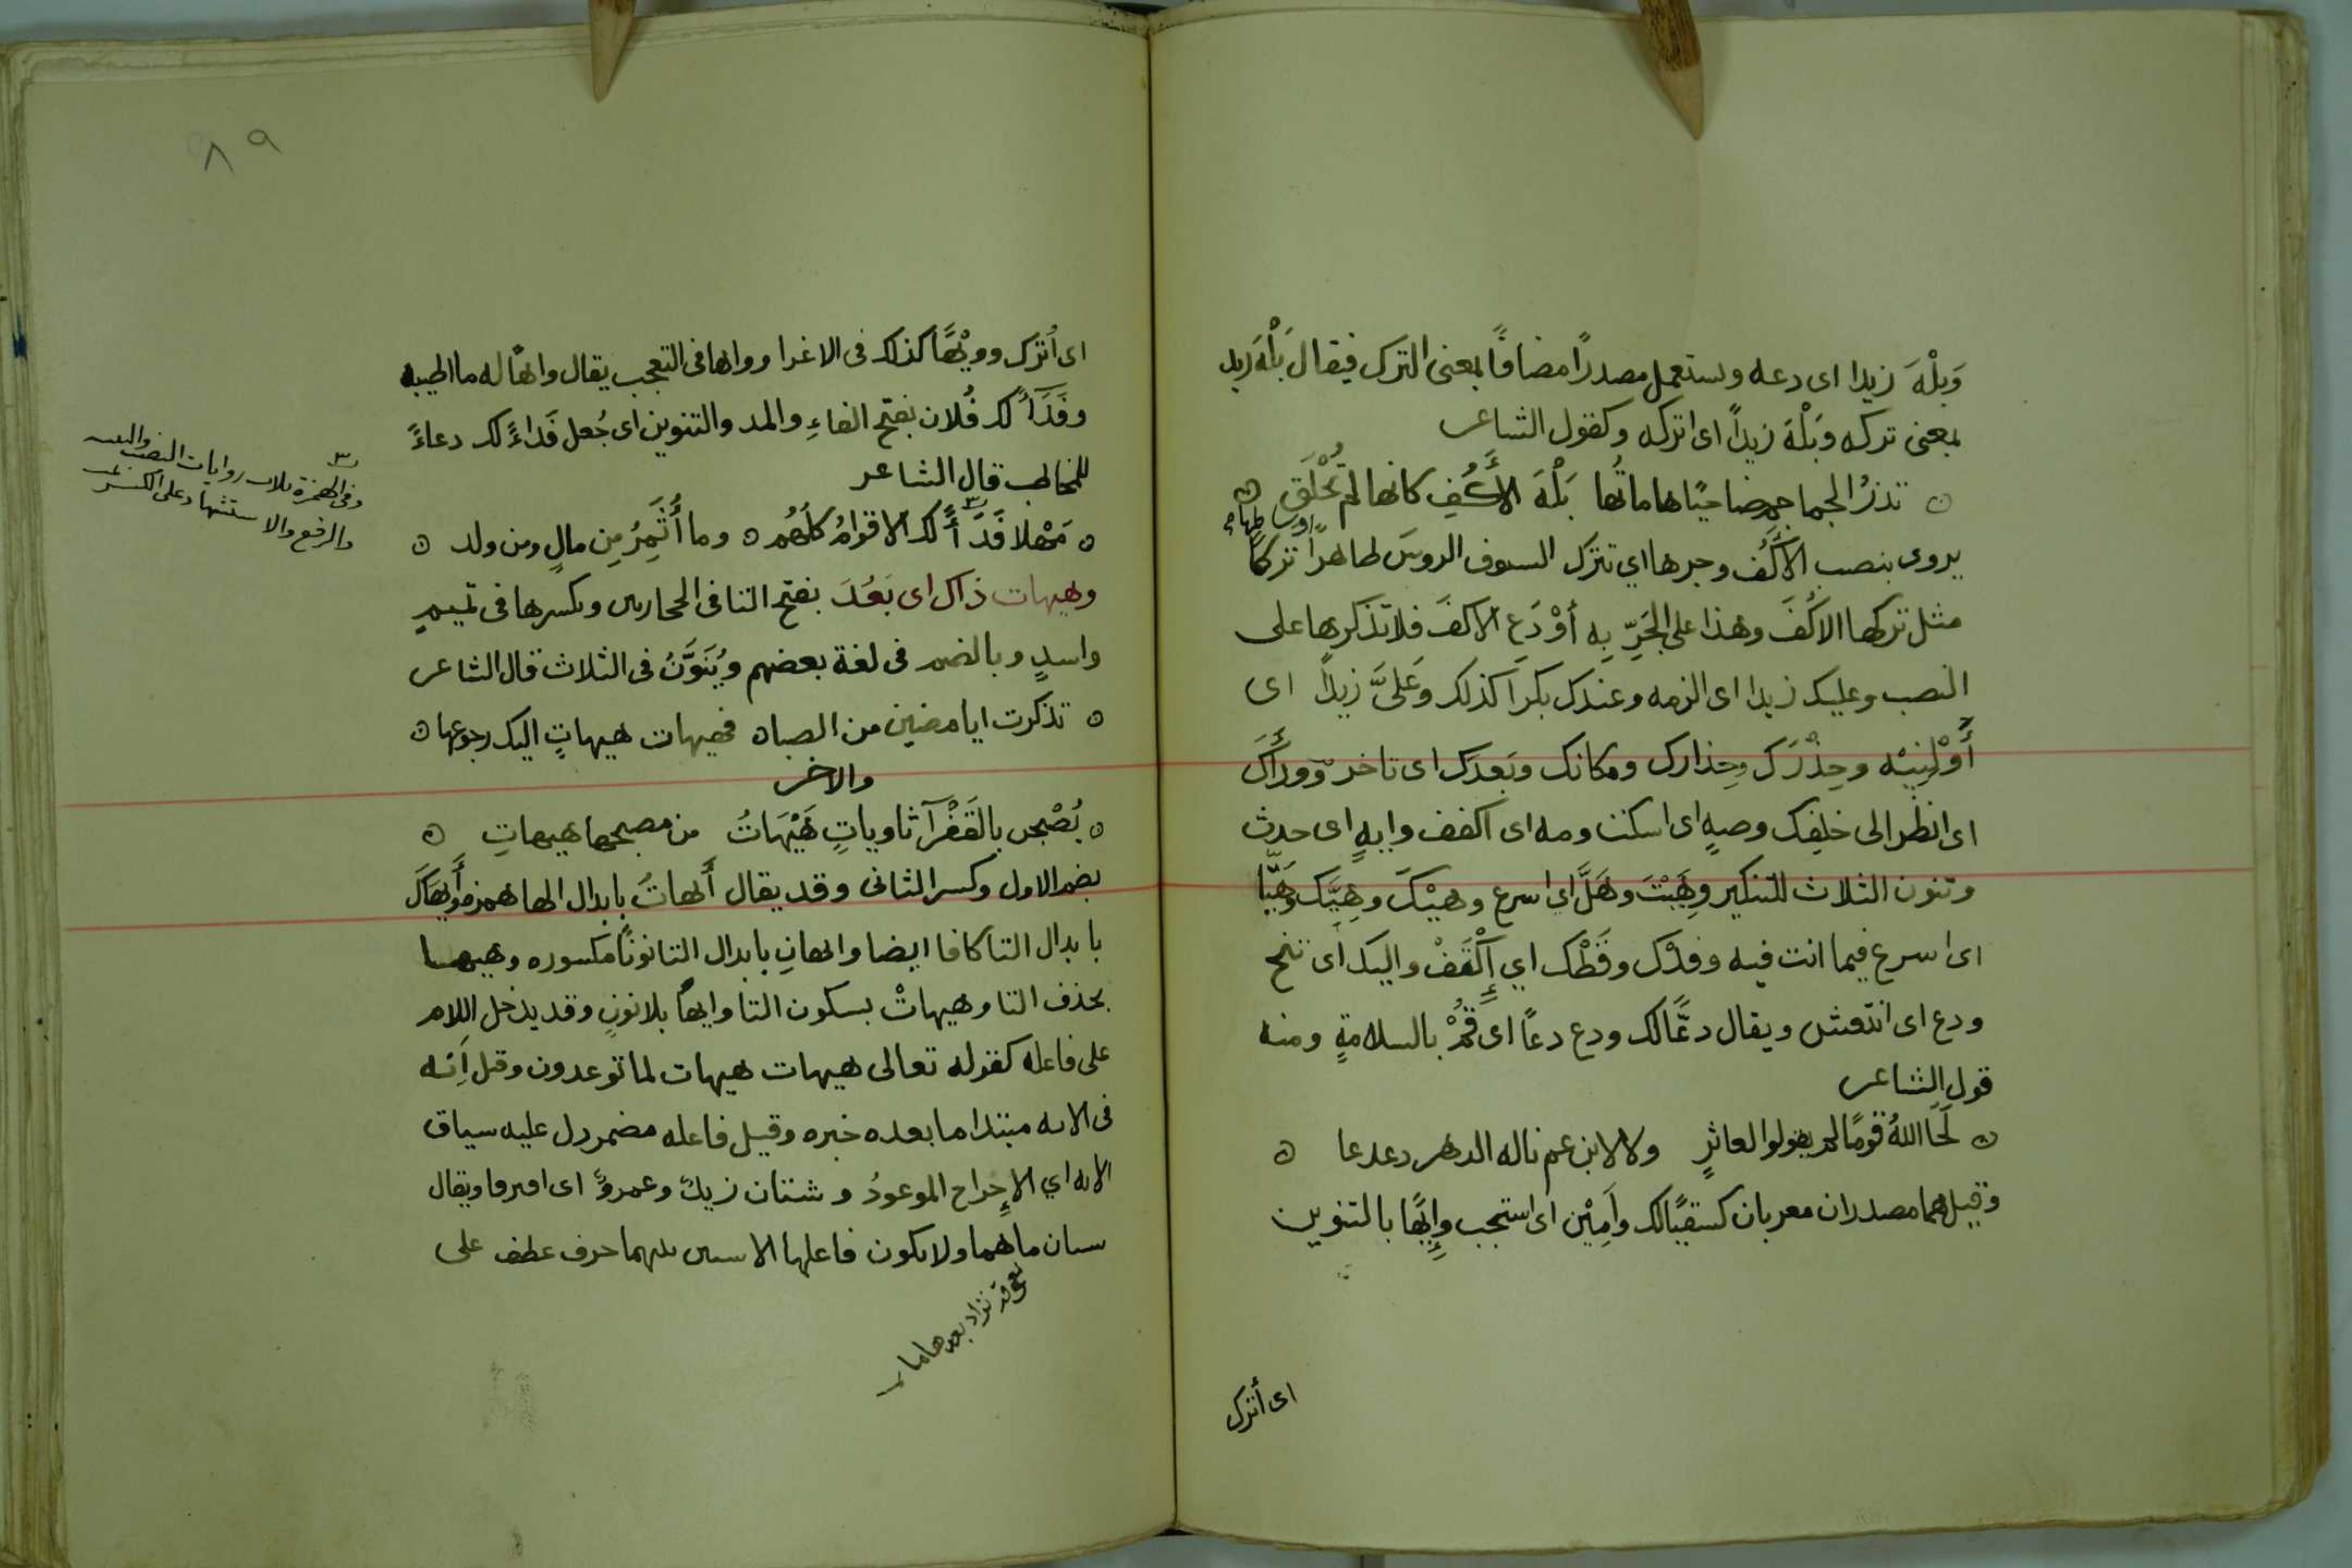 وَبَلْهَ زيدا اى دعه ويستعمل مصدرًا مضافًا بمعنى الترك فيقال بَلْهَ زيد
بمعنى تركه وَبَلْهَ زيداً اى اتركه وكقول الشاعر
تذرُ الجماجم ضاحيًا هاماتُها بَلْهَ الأَكُفِ كانها لم تُخْلَقِ
يروى بنصب الاَكُف وجرها اي تترك السيوف الروسَ ظاهراً تركاً
مثل تركها الاكُفَ وهذا على الجَرِّ بِه أوْ دَعِ الاكفَ فلا تذكرها على
النصب وعليك زيدا اى الزمه وعندك بكراً كذلك وعَلَىَّ زيداً اى
أَوْلِنِيْه وحِذْرَك وحِذارك ومكانك وبَعدَك اى تاخر ووراَكَ
اى انظر الى خلفِك وصهٍ اى اسكت ومه اى اكفف وايهٍ اى حدث
وتنون الثلاث للتنكير وهَيْتَ وهَلَّ اي اسرع وهيْكَ وهِيَّك وهَيَّا
اى اسرع فيما انت فيه وقدْك وقَطْك اي إِكْتَفْ واليك اى تنح
ودع اى انتعش ويقال دعًّا لك ودع دعاً اى قُمْ بالسلامةٍ ومنه
قول الشاعر
لَحَا اللهُ قومًا لم يقولوا لعاثرٍ ولا لابن عم ناله الدهر دعدعا
وقيل هما مصدران معربان كسقيًا لك واَمِيْن اى استجب وإيهًا بالتنوين
اى أترك
٨٩
اى أترك وويْهًا كذلك فى الاغرا وواها فى التعجب يقال واهًا له ما اطيبه
وفَدَاً لك فُلان بفتح الفاءِ والمد والتنوين اى جُعل فَداءً لك دعاءً
للمخاطب قال الشاعر
مَهْلا فَدَاً لك الاقوامُ كلهُم وما أُثَمِرُ مِن مالٍ ومن ولد
وهيهات ذاك اى بَعُدَ بفتح التا فى الحجازيين وبكسرها فى تميمٍ
واسدٍ وبالضم فى لغة بعضهم ويُنَوَّنُ فى الثلاث قال الشاعر
تذكرت اياما مضين من الصبا فهيهات هيهاتٍ اليك رجوعها
والاخر
يُصْبحن بالقَفْرآ ثاوياتٍ هَيْهَاتُ من مصبحها هيهاتِ
بضم الاول وكسر الثانى وقد يقال أَيهاتُ بابدال الها همزه وأَيهَاكَ
بابدال التا كافا ايضا وايهانِ بابدال التا نونًا مكسوره وهيهـا
بحذف التا وهيهاتْ بسكون التا وايهاً بلا نون وقد يدخل اللام
على فاعله كقوله تعالى هيهات هيهات لما توعدون وقيل اَنه
فى الايه مبتدا ما بعده خبره وقيل فاعله مضمر دل عليه سياق
الايه اي الاِخراج الموعودُ وشتان زيدٌ وعمروٌ اى افترقا ويقال
شتان ما هما ولا يكون فاعلها الا اسمين بينهما حرف عطف على
وفى الهمزة ثلاث روايات النصب
والرفع والاستشهاد على الكسر
قد تزاد بعدها ما